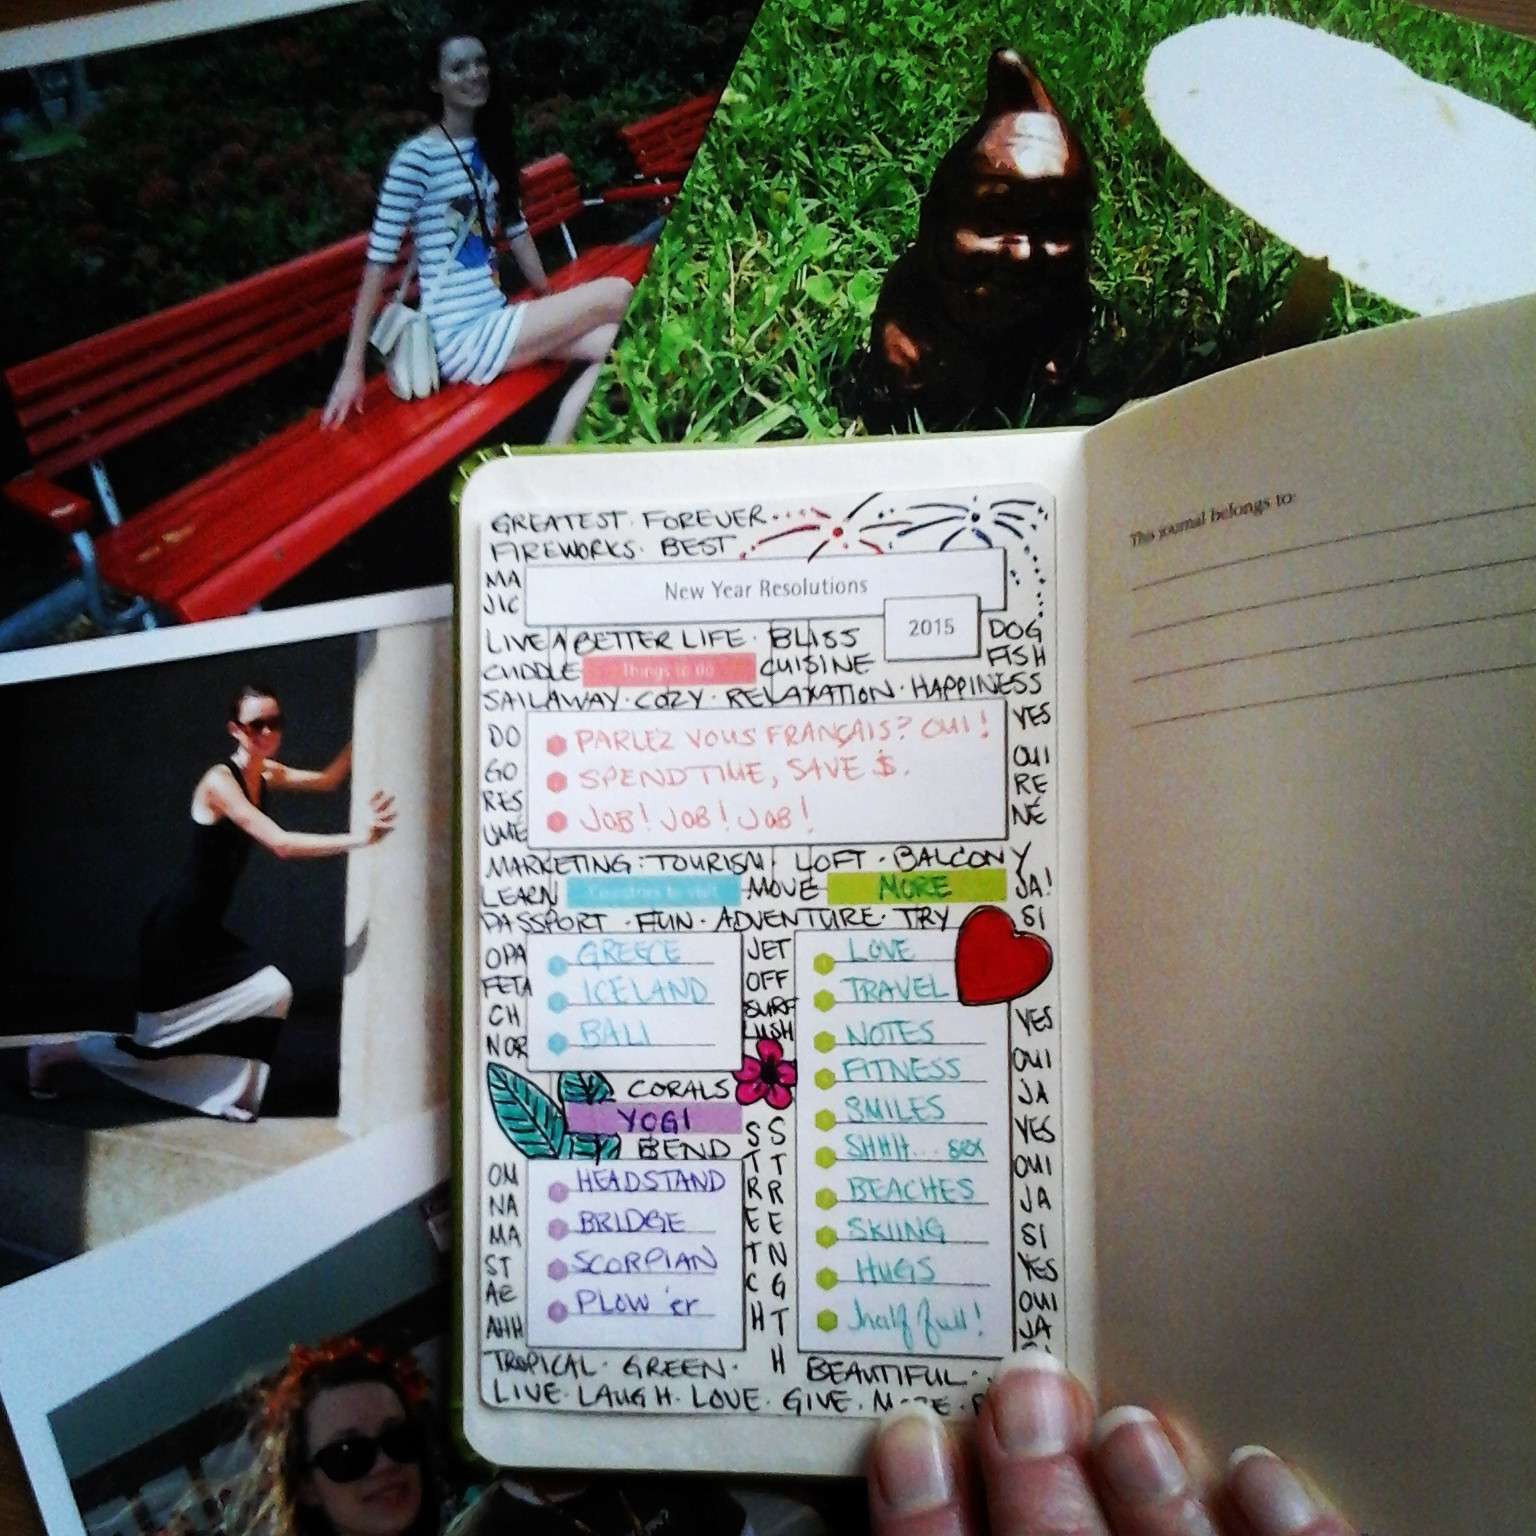 GREATEST · FOREVER
FIREWORKS · BEST
MA
JIC
New Year Resolutions
2015
LIVE A BETTER LIFE · BLISS
DOG
FISH
CUDDLE
Things to do
CUISINE
SAILAWAY · COZY · RELAXATION · HAPPINESS
DO
GO
RES
UMÉ
PARLEZ VOUS FRANÇAIS? OUI!
SPEND TIME, SAVE $.
JOB! JOB! JOB!
YES
OUI
RE
NÉ
MARKETING : TOURISM · LOFT · BALCONY
LEARN
MOVE
MORE
JA!
PASSPORT · FUN · ADVENTURE · TRY
SI
OPA
FETA
CH
NOR
GREECE
ICELAND
BALI
JET
OFF
SURF
LUSH
CORALS
YOGI
BEND
OM
NA
MA
ST
AE
AHH
HEADSTAND
BRIDGE
SCORPIAN
PLOW 'er
STRETCH
STRENGTH
LOVE
TRAVEL
NOTES
FITNESS
SMILES
SHHH... sex
BEACHES
SKIING
HUGS
half full!
YES
OUI
JA
YES
OUI
JA
SI
YES
OUI
JA
TROPICAL · GREEN ·
BEAUTIFUL ·
LIVE · LAUGH · LOVE · GIVE · MORE ·
This journal belongs to: